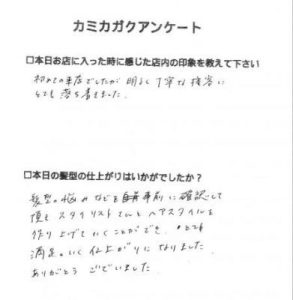 カミカガクアンケート
□本日お店に入った時に感じた店内の印象を教えて下さい
初めての来店でしたが 明るく丁寧な接客に
とても落ち着きました。
□本日の髪型の仕上がりはいかがでしたか？
髪型の悩みなどを事前に確認して
頂き スタイリストさんとヘアスタイルを
作り上げていくことができ、とても
満足のいく仕上がりになりました。
ありがとうございました。